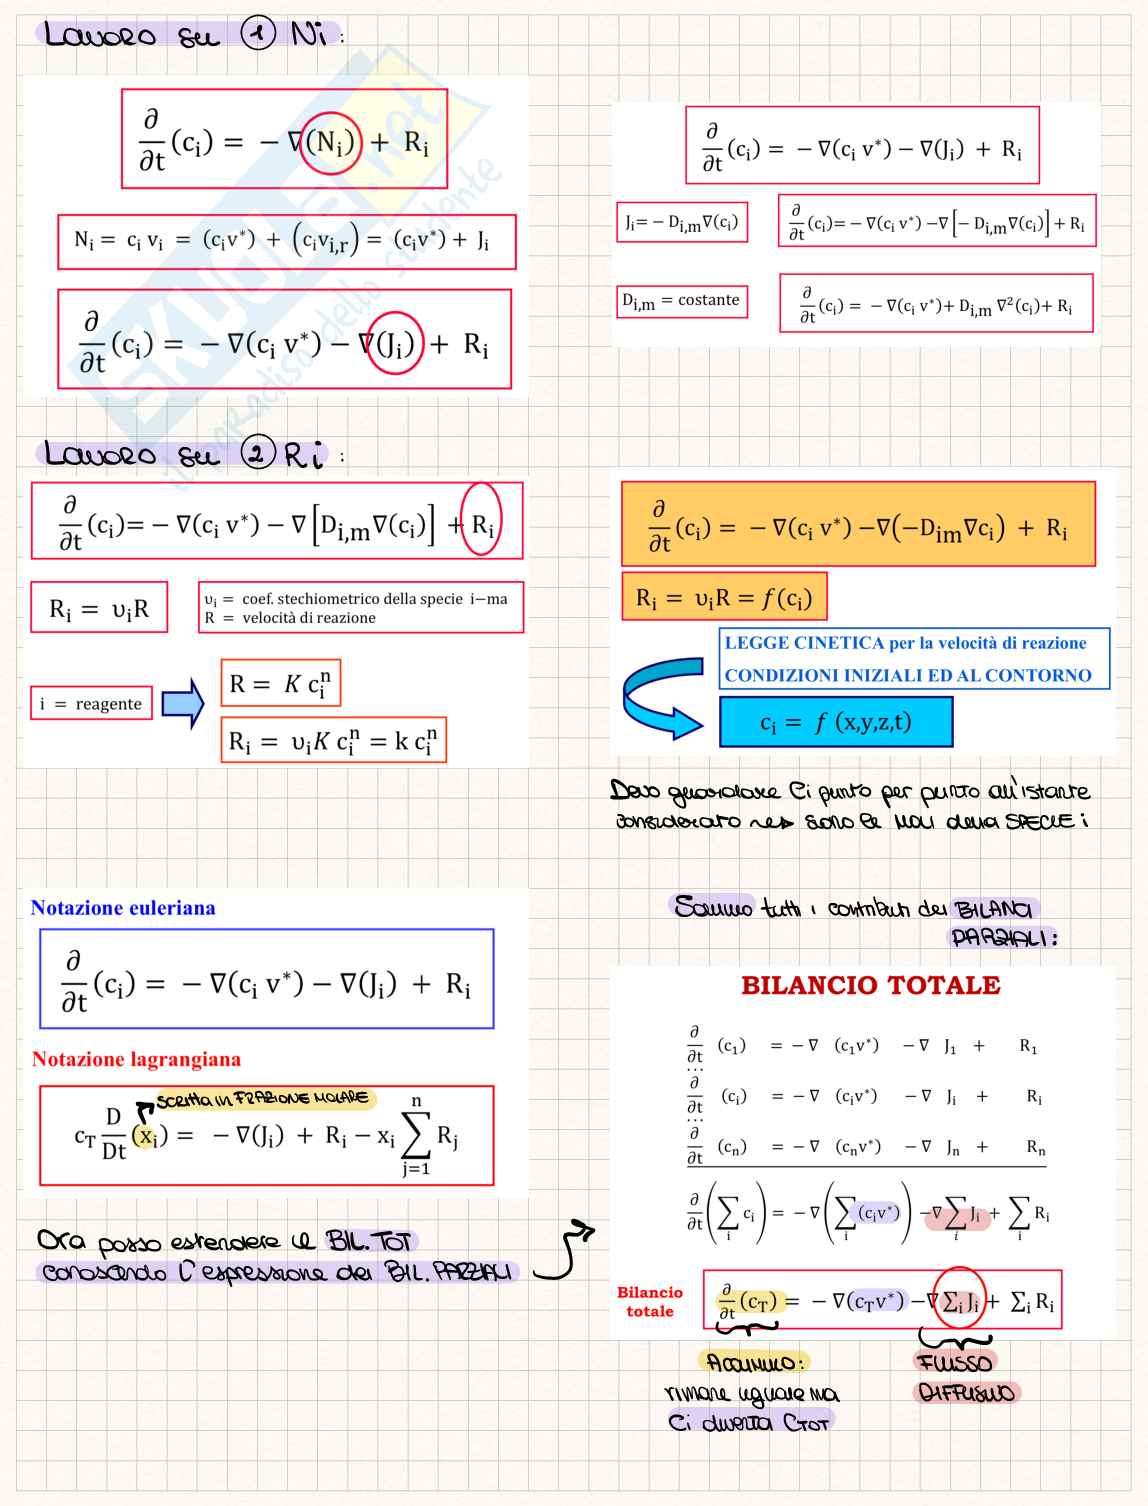 Lavoro su ① Ni:
∂/∂t (cᵢ) = − ∇(Nᵢ) + Rᵢ
Nᵢ = cᵢ vᵢ = (cᵢv*) + (cᵢvᵢ,ᵣ) = (cᵢv*) + Jᵢ
∂/∂t (cᵢ) = − ∇(cᵢ v*) − ∇(Jᵢ) + Rᵢ
∂/∂t (cᵢ) = − ∇(cᵢ v*) − ∇(Jᵢ) + Rᵢ
Jᵢ= − Dᵢ,ₘ∇(cᵢ)
∂/∂t (cᵢ)= − ∇(cᵢ v*) −∇[− Dᵢ,ₘ∇(cᵢ)] + Rᵢ
Dᵢ,ₘ = costante
∂/∂t (cᵢ) = − ∇(cᵢ v*)+ Dᵢ,ₘ ∇²(cᵢ)+ Rᵢ
Lavoro su ② Ri:
∂/∂t (cᵢ)= − ∇(cᵢ v*) − ∇[Dᵢ,ₘ∇(cᵢ)] + Rᵢ
Rᵢ = υᵢR
υᵢ = coef. stechiometrico della specie i−ma
R = velocità di reazione
i = reagente
R = K cᵢⁿ
Rᵢ = υᵢK cᵢⁿ = k cᵢⁿ
∂/∂t (cᵢ) = − ∇(cᵢ v*) −∇(−Dᵢₘ∇cᵢ) + Rᵢ
Rᵢ = υᵢR = f(cᵢ)
LEGGE CINETICA per la velocità di reazione
CONDIZIONI INIZIALI ED AL CONTORNO
cᵢ = f (x,y,z,t)
Devo guardare Ci punto per punto all'istante
considerato → sono le MOLI della SPECIE i
Notazione euleriana
∂/∂t (cᵢ) = − ∇(cᵢ v*) − ∇(Jᵢ) + Rᵢ
Notazione lagrangiana
scritta in FRAZIONE MOLARE
c_T D/Dt (xᵢ) = − ∇(Jᵢ) + Rᵢ − xᵢ ∑ⱼ₌₁ⁿ Rⱼ
Ora posso estendere il BIL. TOT
conoscendo l'espressione dei BIL. PARZIALI
Sommo tutti i contributi dei BILANCI
PARZIALI:
BILANCIO TOTALE
∂/∂t (c₁) = − ∇ (c₁v*) − ∇ J₁ + R₁
...
∂/∂t (cᵢ) = − ∇ (cᵢv*) − ∇ Jᵢ + Rᵢ
...
∂/∂t (cₙ) = − ∇ (cₙv*) − ∇ Jₙ + Rₙ
∂/∂t (∑ᵢ cᵢ) = − ∇ (∑ᵢ (cᵢv*)) −∇ ∑ᵢ Jᵢ + ∑ᵢ Rᵢ
Bilancio
totale
∂/∂t (c_T) = − ∇(c_Tv*) −∇ ∑ᵢ Jᵢ + ∑ᵢ Rᵢ
ACCUMULO:
rimane uguale ma
Ci diventa CTOT
FLUSSO
DIFFUSIVO
SKUOLA.net
il paradiso dello studente